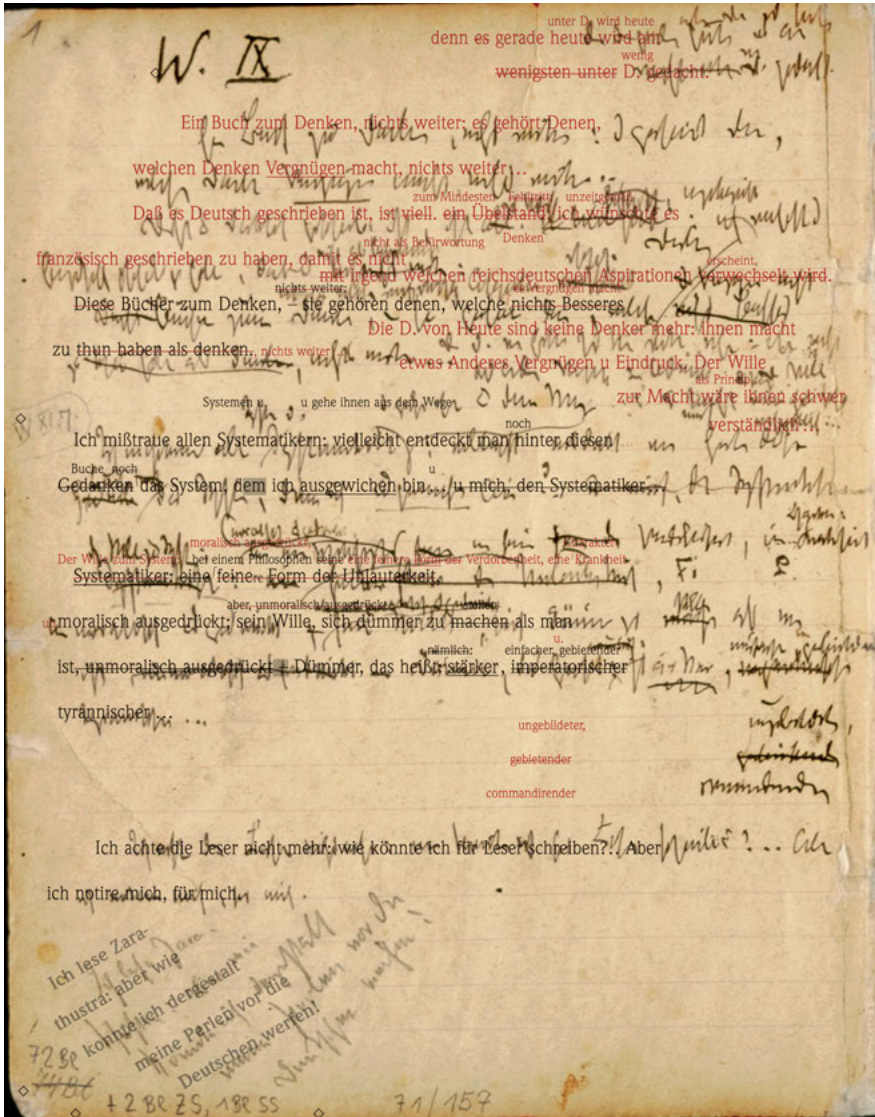 1
unter D. wird heute
denn es gerade heute wird am
W. IX
wenig
wenigsten unter D. gedacht.
Ein Buch zum Denken, nichts weiter: es gehört Denen,
welchen Denken Vergnügen macht, nichts weiter...
zum Mindesten Fehltritt unzeitgemäß
Daß es Deutsch geschrieben ist, ist viell. ein Übelstand: ich wünschte es
nicht als Befürwortung Denken
französisch geschrieben zu haben, damit es nicht
erscheint,
mit irgend welchen reichsdeutschen Aspirationen verwechselt wird.
nichts weiter:
Diese Bücher zum Denken, – sie gehören denen, welche nichts Besseres
Die D. von Heute sind keine Denker mehr: ihnen macht
zu thun haben als denken. nichts weiter
etwas Anderes Vergnügen u Eindruck. Der Wille
als Princip
zur Macht wäre ihnen schwer
Systemen u. u gehe ihnen aus dem Wege.
verständlich...
W XI 7.
noch
Ich mißtraue allen Systematikern: vielleicht entdeckt man hinter diesen
Buche noch u
Gedanken das System, dem ich ausgewichen bin... u mich, den Systematiker...
moralisch ausgedrückt,
Der Wille zum System: bei einem Philosophen seine eine feinere Form der Verdorbenheit, eine Krankheit
Systematiker: eine feinere Form der Unlauterkeit.
aber, unmoralisch ausgedrückt
moralisch ausgedrückt; sein Wille, sich dümmer zu machen als man
u.
nämlich: einfacher, gebietender
ist, unmoralisch ausgedrückt – Dümmer, das heißt: stärker, imperatorischer
tyrannischer...
ungebildeter,
gebietender
commandirender
Ich achte die Leser nicht mehr: wie könnte ich für Leser schreiben?.. Aber
ich notire mich, für mich.
Ich lese Zara-
thustra: aber wie
konnte ich dergestalt
meine Perlen vor die
Deutschen werfen!
72 Be
74 Bl
+ 2 Be ZS, 1 Be SS
71/157